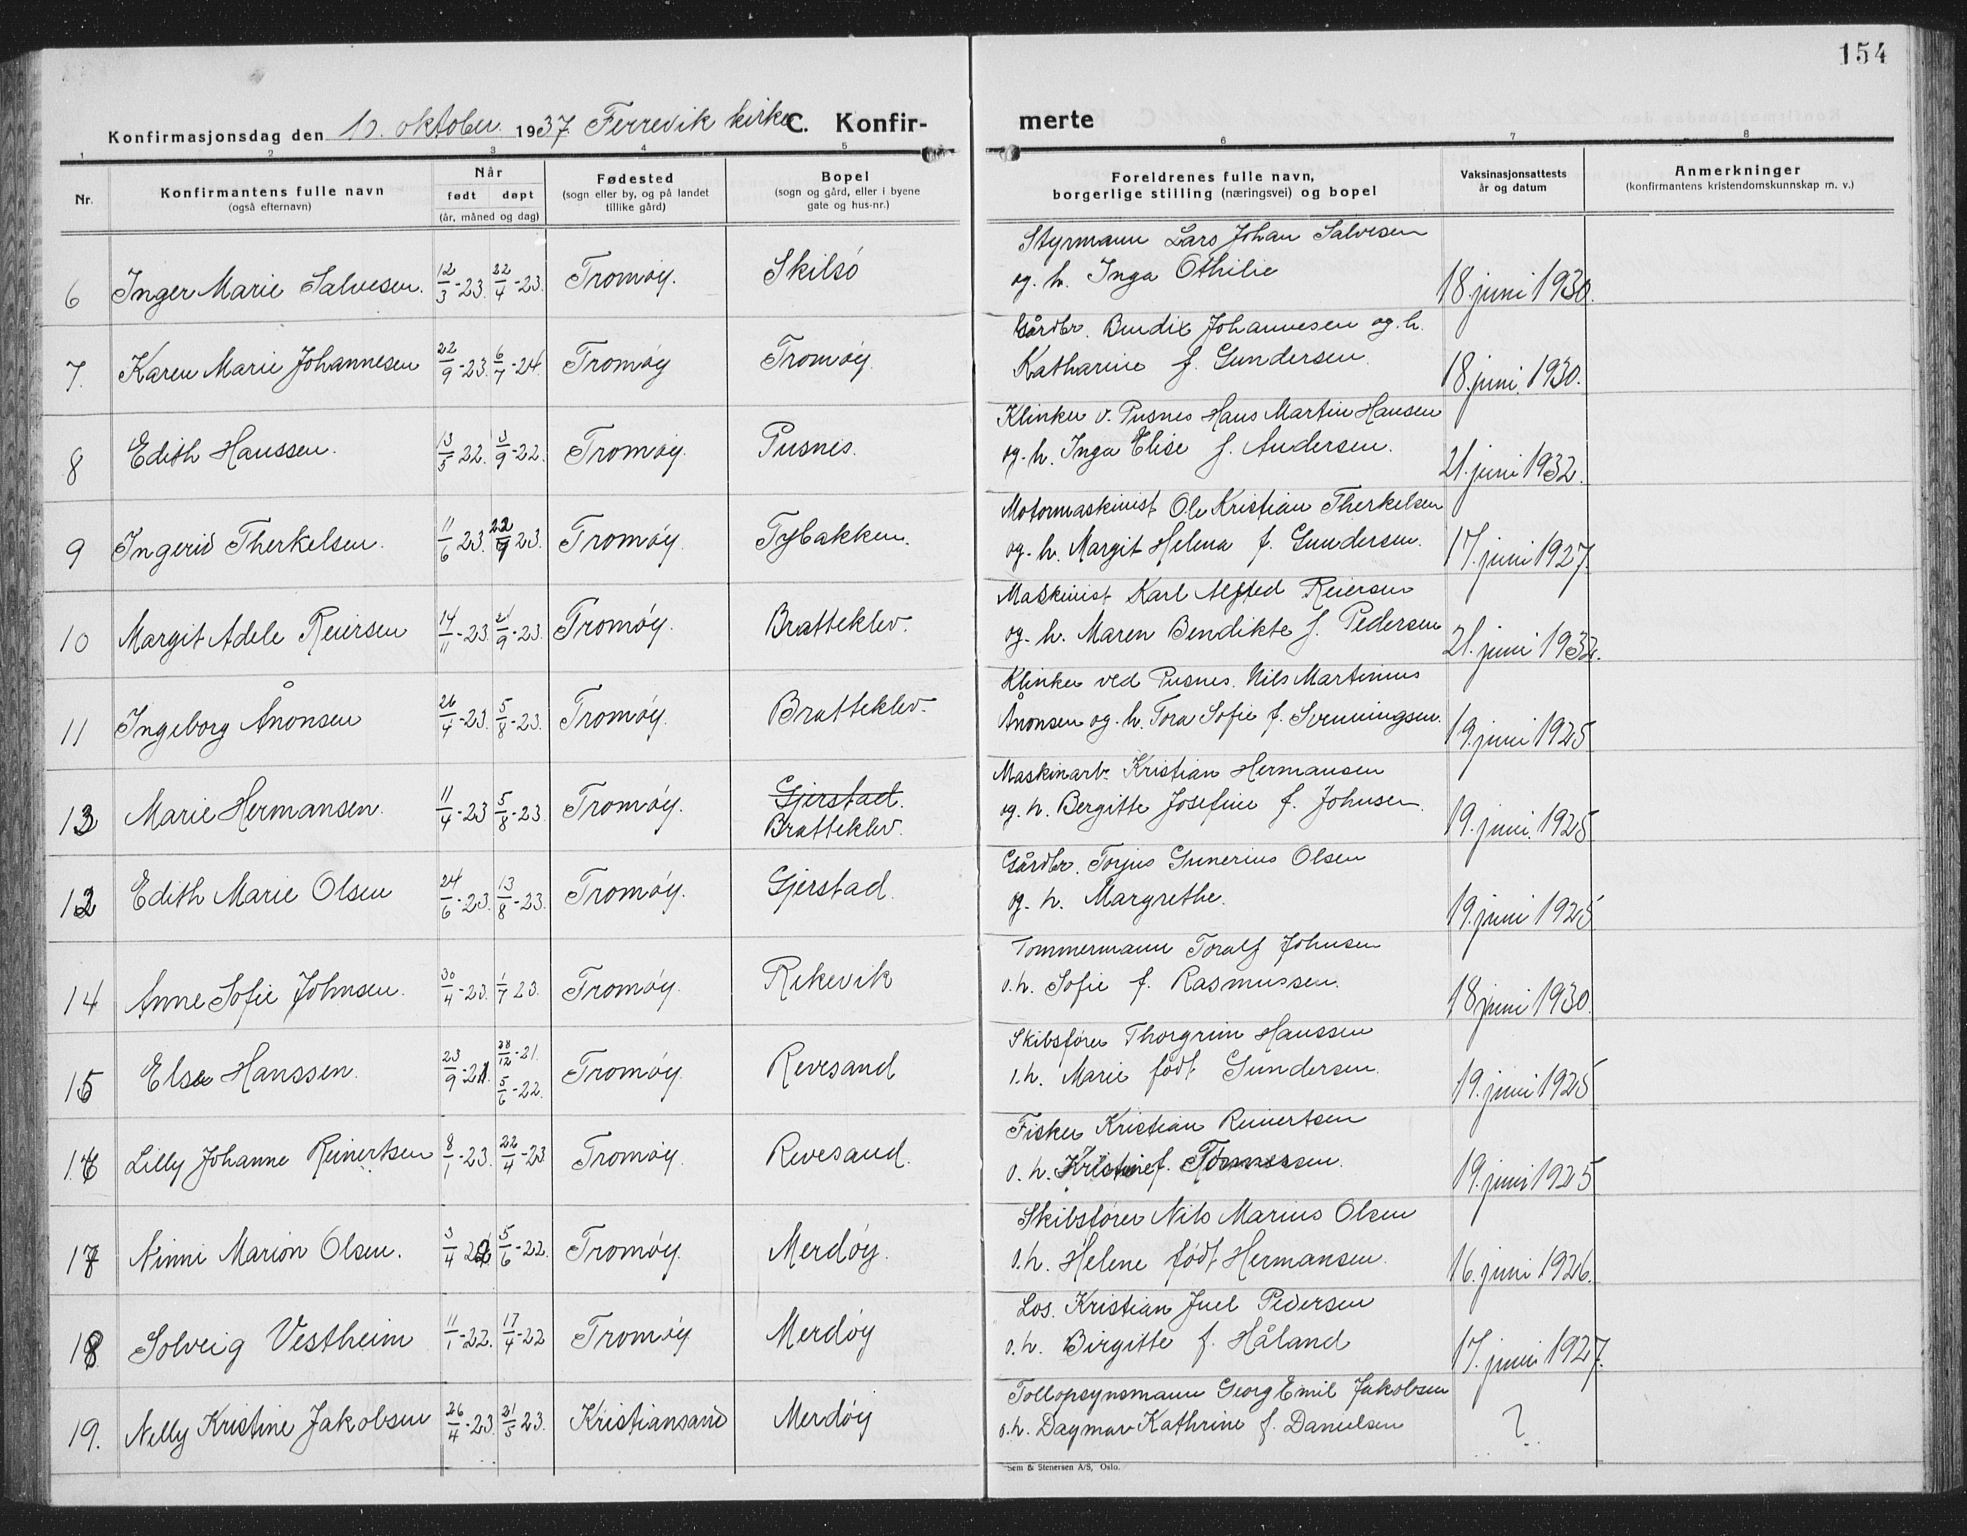 154
Konfirmasjonsdag den 10. oktober 1937 Færevik kirke C. Konfir- merte
1 2 3 4 5 6 7 8
Nr. Konfirmantens fulle navn (også efternavn) Når født døpt (år, måned og dag) Fødested (sogn eller by, og på landet tillike gård) Bopel (sogn og gård, eller i byene gate og hus-nr.) Foreldrenes fulle navn, borgerlige stilling (næringsvei) og bopel Vaksinasjonsattests år og datum Anmerkninger (konfirmantens kristendomskunnskap m. v.)
Styrmann Lars Johan Salvesen
6 Inger Marie Salvesen. 12/3-23. 22/4-23. Tromøy. Skilsö og h. Inga Othilie 18. juni 1930.
Gårdbr. Bendix Johannesen og h.
7. Karen Marie Johannesen 22/9-23. 6/7-24. Tromøy Tromøy. Katharine f. Gundersen. 18. juni 1930.
Klinker v. Pusnes Hans Martin Hansen
8 Edith Hanssen. 13/5 22. 3/9-22. Tromøy. Pusnes. og h. Inga Elise f. Andersen. 21. juni 1932.
Motormaskinist Ole Kristian Therkelsen
9 Ingerid Therkelsen. 11/6 23. 22/9 23. Tromøy. Tybakken. og h. Margit Helena f. Gundersen. 17. juni 1927.
Maskinist Karl Alfred Reiersen
10 Margit Adele Reiersen 14/11-23. 21/9-23. Tromøy. Bratteklev. og h. Maren Bendikte f. Pedersen 21. juni 1932.
Klinker ved Pusnes. Nils Martinius
11 Ingeborg Ånonsen 26/4-23. 5/8-23. Tromøy. Bratteklev. Ånonsen og h. Tora Sofie f. Svenningsen. 19. juni 1925
Maskinarb. Kristian Hermansen
13 Marie Hermansen. 11/4-23 5/8-23. Tromøy. Gjerstad. Bratteklev. og h. Bergitte Josefine f. Johnsen. 19. juni. 1925
Gårdbr. Torjus Gunerius Olsen
12 Edith Marie Olsen 24/6-23. 13/8-23. Tromøy. Gjerstad. og h. Margrethe. 19. juni 1925
Tommermann Toralf Johnsen
14 Anne Sofie Johnsen. 30/4-23. 1/7 23. Tromøy. Rekevik o.h. Sofie f. Rasmussen. 18 juni 1930.
Skibsfører Thorgrim Hanssen
15 Else Hanssen. 23/9-21. 28/12-21. 5/6-22. Tromøy. Revesand o.h. Marie født Gundersen. 19. juni 1925
Fisker Kristian Reinertsen
16 Lilly Johanne Reinertsen 8/1-23. 22/4-23 Tromøy. Revesand. o.h. Kristine f. Tønnessen. 19. juni 1925
Skibsfører Nils Marius Olsen
17 Ninni Marion Olsen. 3/4-22 5/6-22. Tromøy. Merdøy. o.h. Helene født Hermansen. 16. juni 1926.
Los. Kristian Juel Pedersen
18 Solveig Vestheim 11/1-22. 17/4-22 Tromøy Merdøy o.h. Birgitte f. Håland 17. juni 1927.
Tollopsynsmann Georg Emil Jakobsen
19. Nelly Kristine Jakobsen 26/4-23. 21/5 23. Kristiansand Merdøy o.h. Dagmar Kathrine f. Danielsen ?
Sem & Stenersen A/S, Oslo.